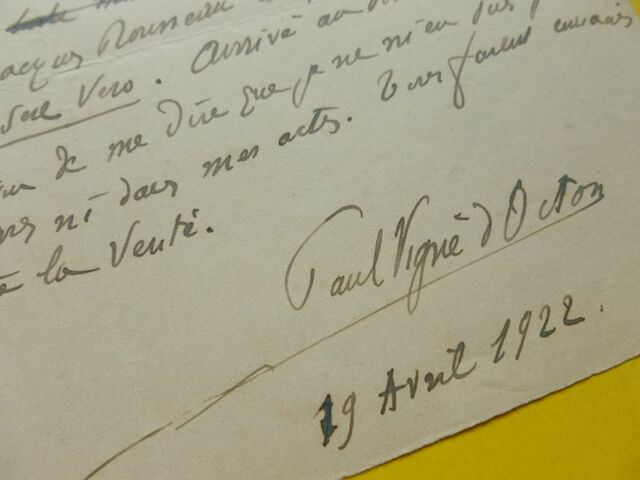 Jacques Rousseau
Vero. Arrivé au
je me dire que je ne m'en suis
ni dans mes actes. Tous furent
la Vérité.
Paul Vigné d'Octon
19 Avril 1922.